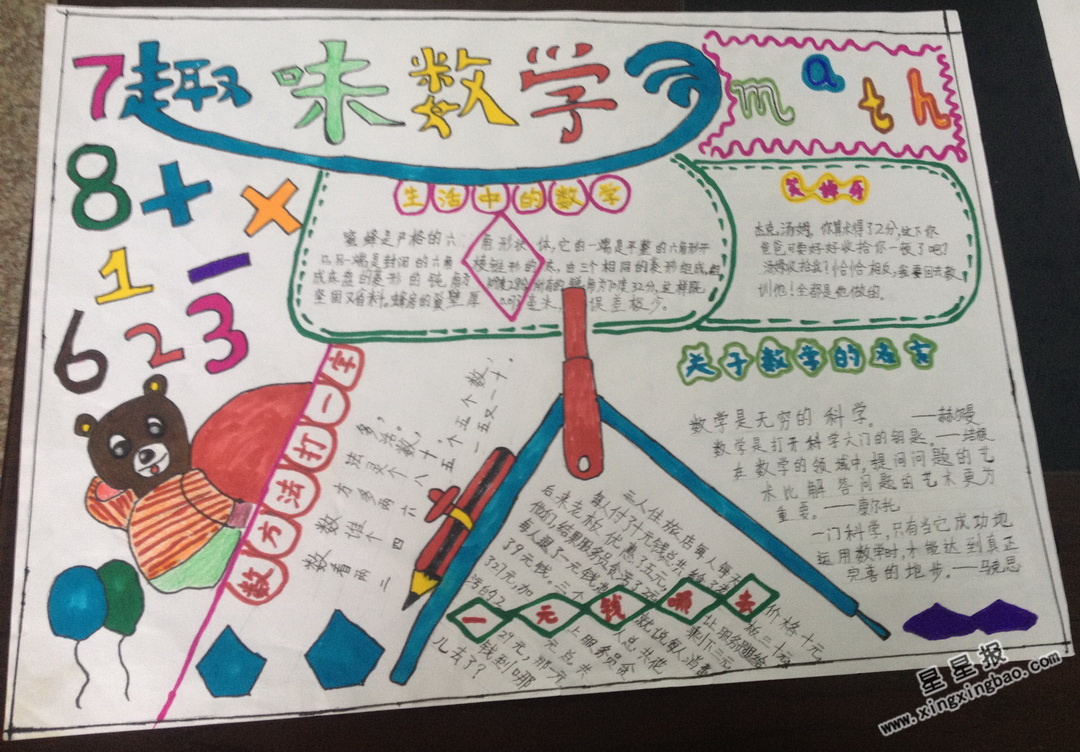 7趣味数学
math
8+×
1-
6 2 3
生活中的数学
蜜蜂是严格的六角形状体，它的一端是平整的六角形开
口，另一端是封闭的六角棱锥形的底，由三个相同的菱形组成，组
成底盘的菱形的钝角为109度28分，所有的锐角为70度32分，这样既
坚固又省料。蜂房的巢壁厚0.073毫米，误差极少。
笑掉牙
杰克：汤姆，你算术得了2分，这下你
爸爸可要好好收拾你一顿了吧？
汤姆：收拾我？恰恰相反，我要回去教
训他！全都是他做的。
数方法打一字
数数方法多，
看谁多灵活，
两个两个数，
二四六八十，
五个五个数，
一五又一十。
一元钱哪去
三人住旅店每人每天价格十元
每人付了元钱总共给了老板三十元
后来老板优惠了五元，让服务员退给
他们，结果服务员贪污了2元，剩下三元
每人退了一元钱，就说每人消费
关于数学的名言
数学是无穷的科学。——赫尔曼
数学是打开科学大门的钥匙。——培根
在数学的领域中，提问问题的艺
术比解答问题的艺术更为
重要。——康尔扎
一门科学，只有当它成功地
运用数学时，才能达到真正
完善的地步。——马克思
星星报
www.xingxingbao.com